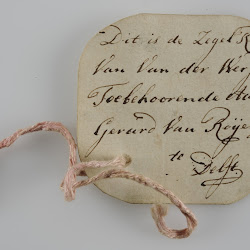 Dit is de Zegel R
Van Van der Wer
Toebehoorende A
Gerard Van Roÿe
te Delft